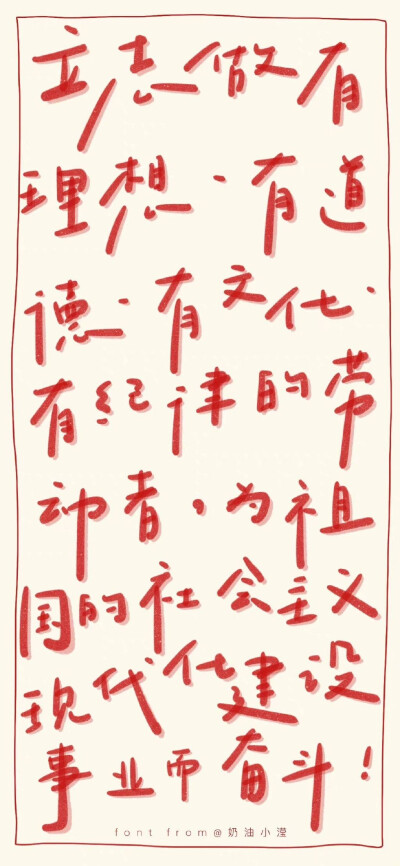 立志做有
理想·有道
德·有文化·
有纪律的劳
动者,为祖
国的社会主义
现代化建设
事业而奋斗!
font from@奶油小滢